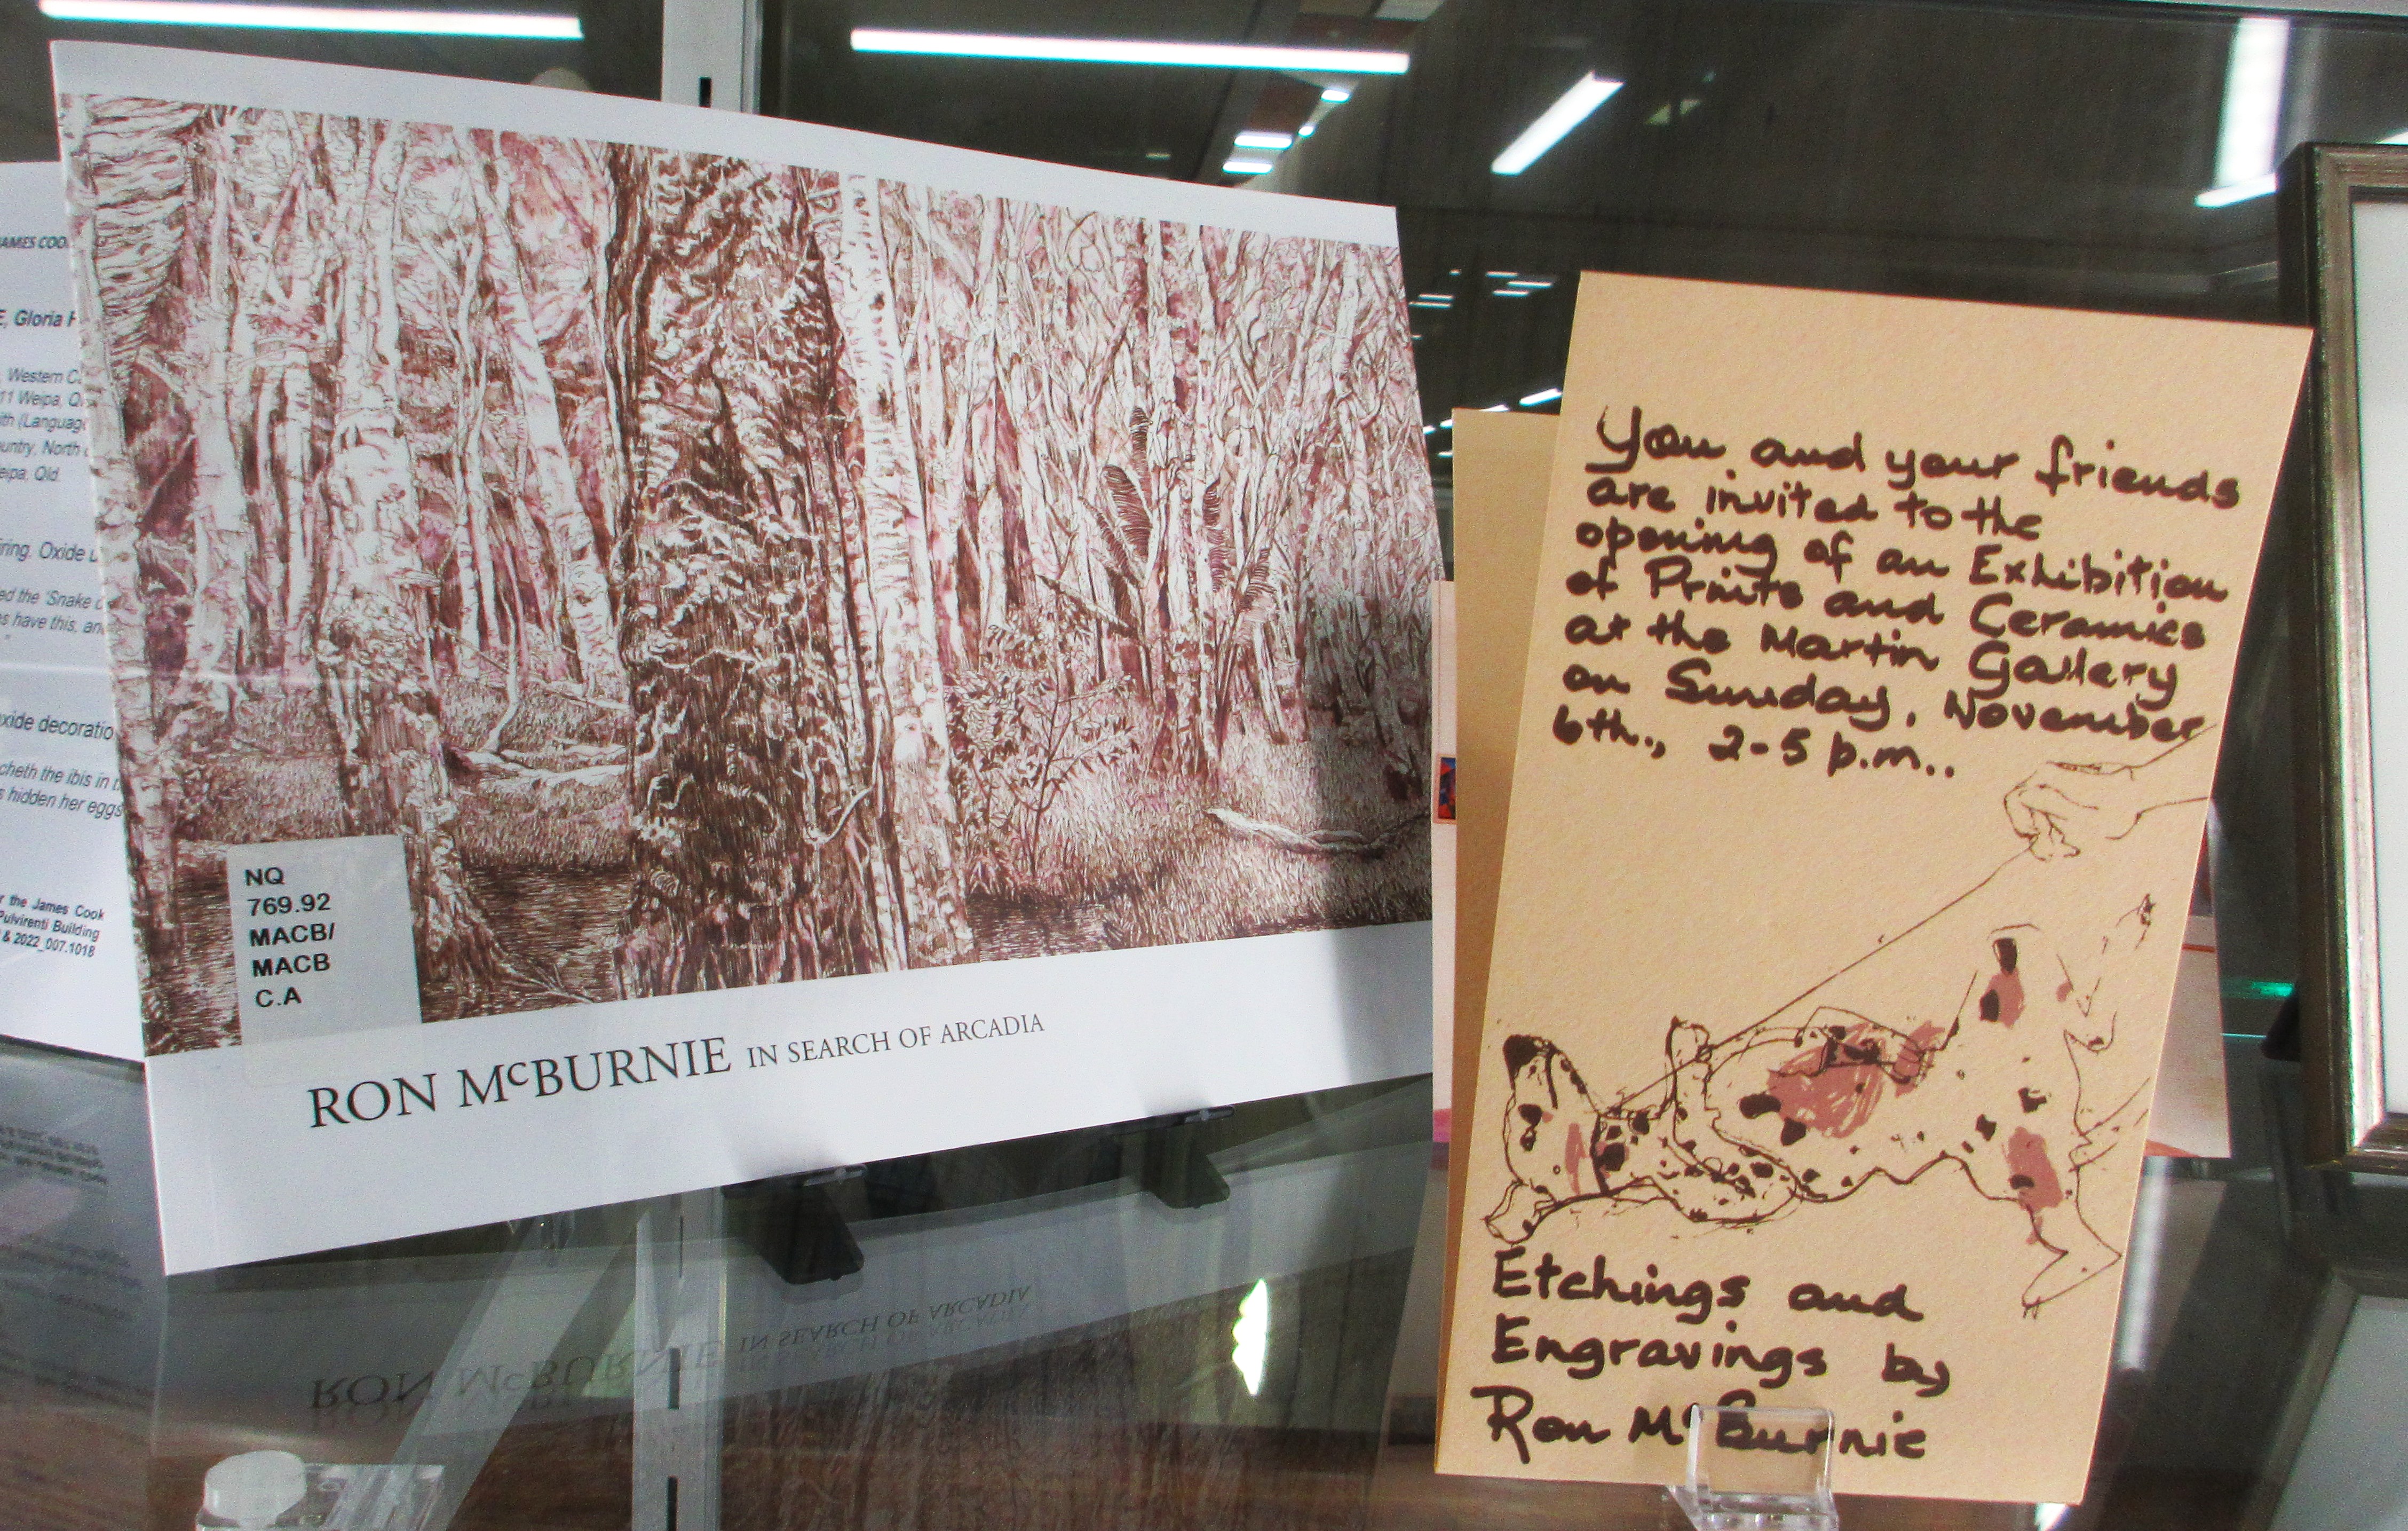 AMES COO
E, Gloria H
Western C
11 Weipa, Q
ith (Languag
untry, North
eipa, Qld.
iring. Oxide u
ed the 'Snake
s have this, an
oxide decoratio
cheth the ibis in t
s hidden her eggs
r the James Cook
Pulvirenti Building
& 2022_007.1018
NQ
769.92
MACB/
MACB
C.A
RON McBURNIE IN SEARCH OF ARCADIA
You and your friends
are invited to the
opening of an Exhibition
of Prints and Ceramics
at the Martin Gallery
on Sunday, November
6th., 2-5 p.m..
Etchings and
Engravings by
Ron McBurnie